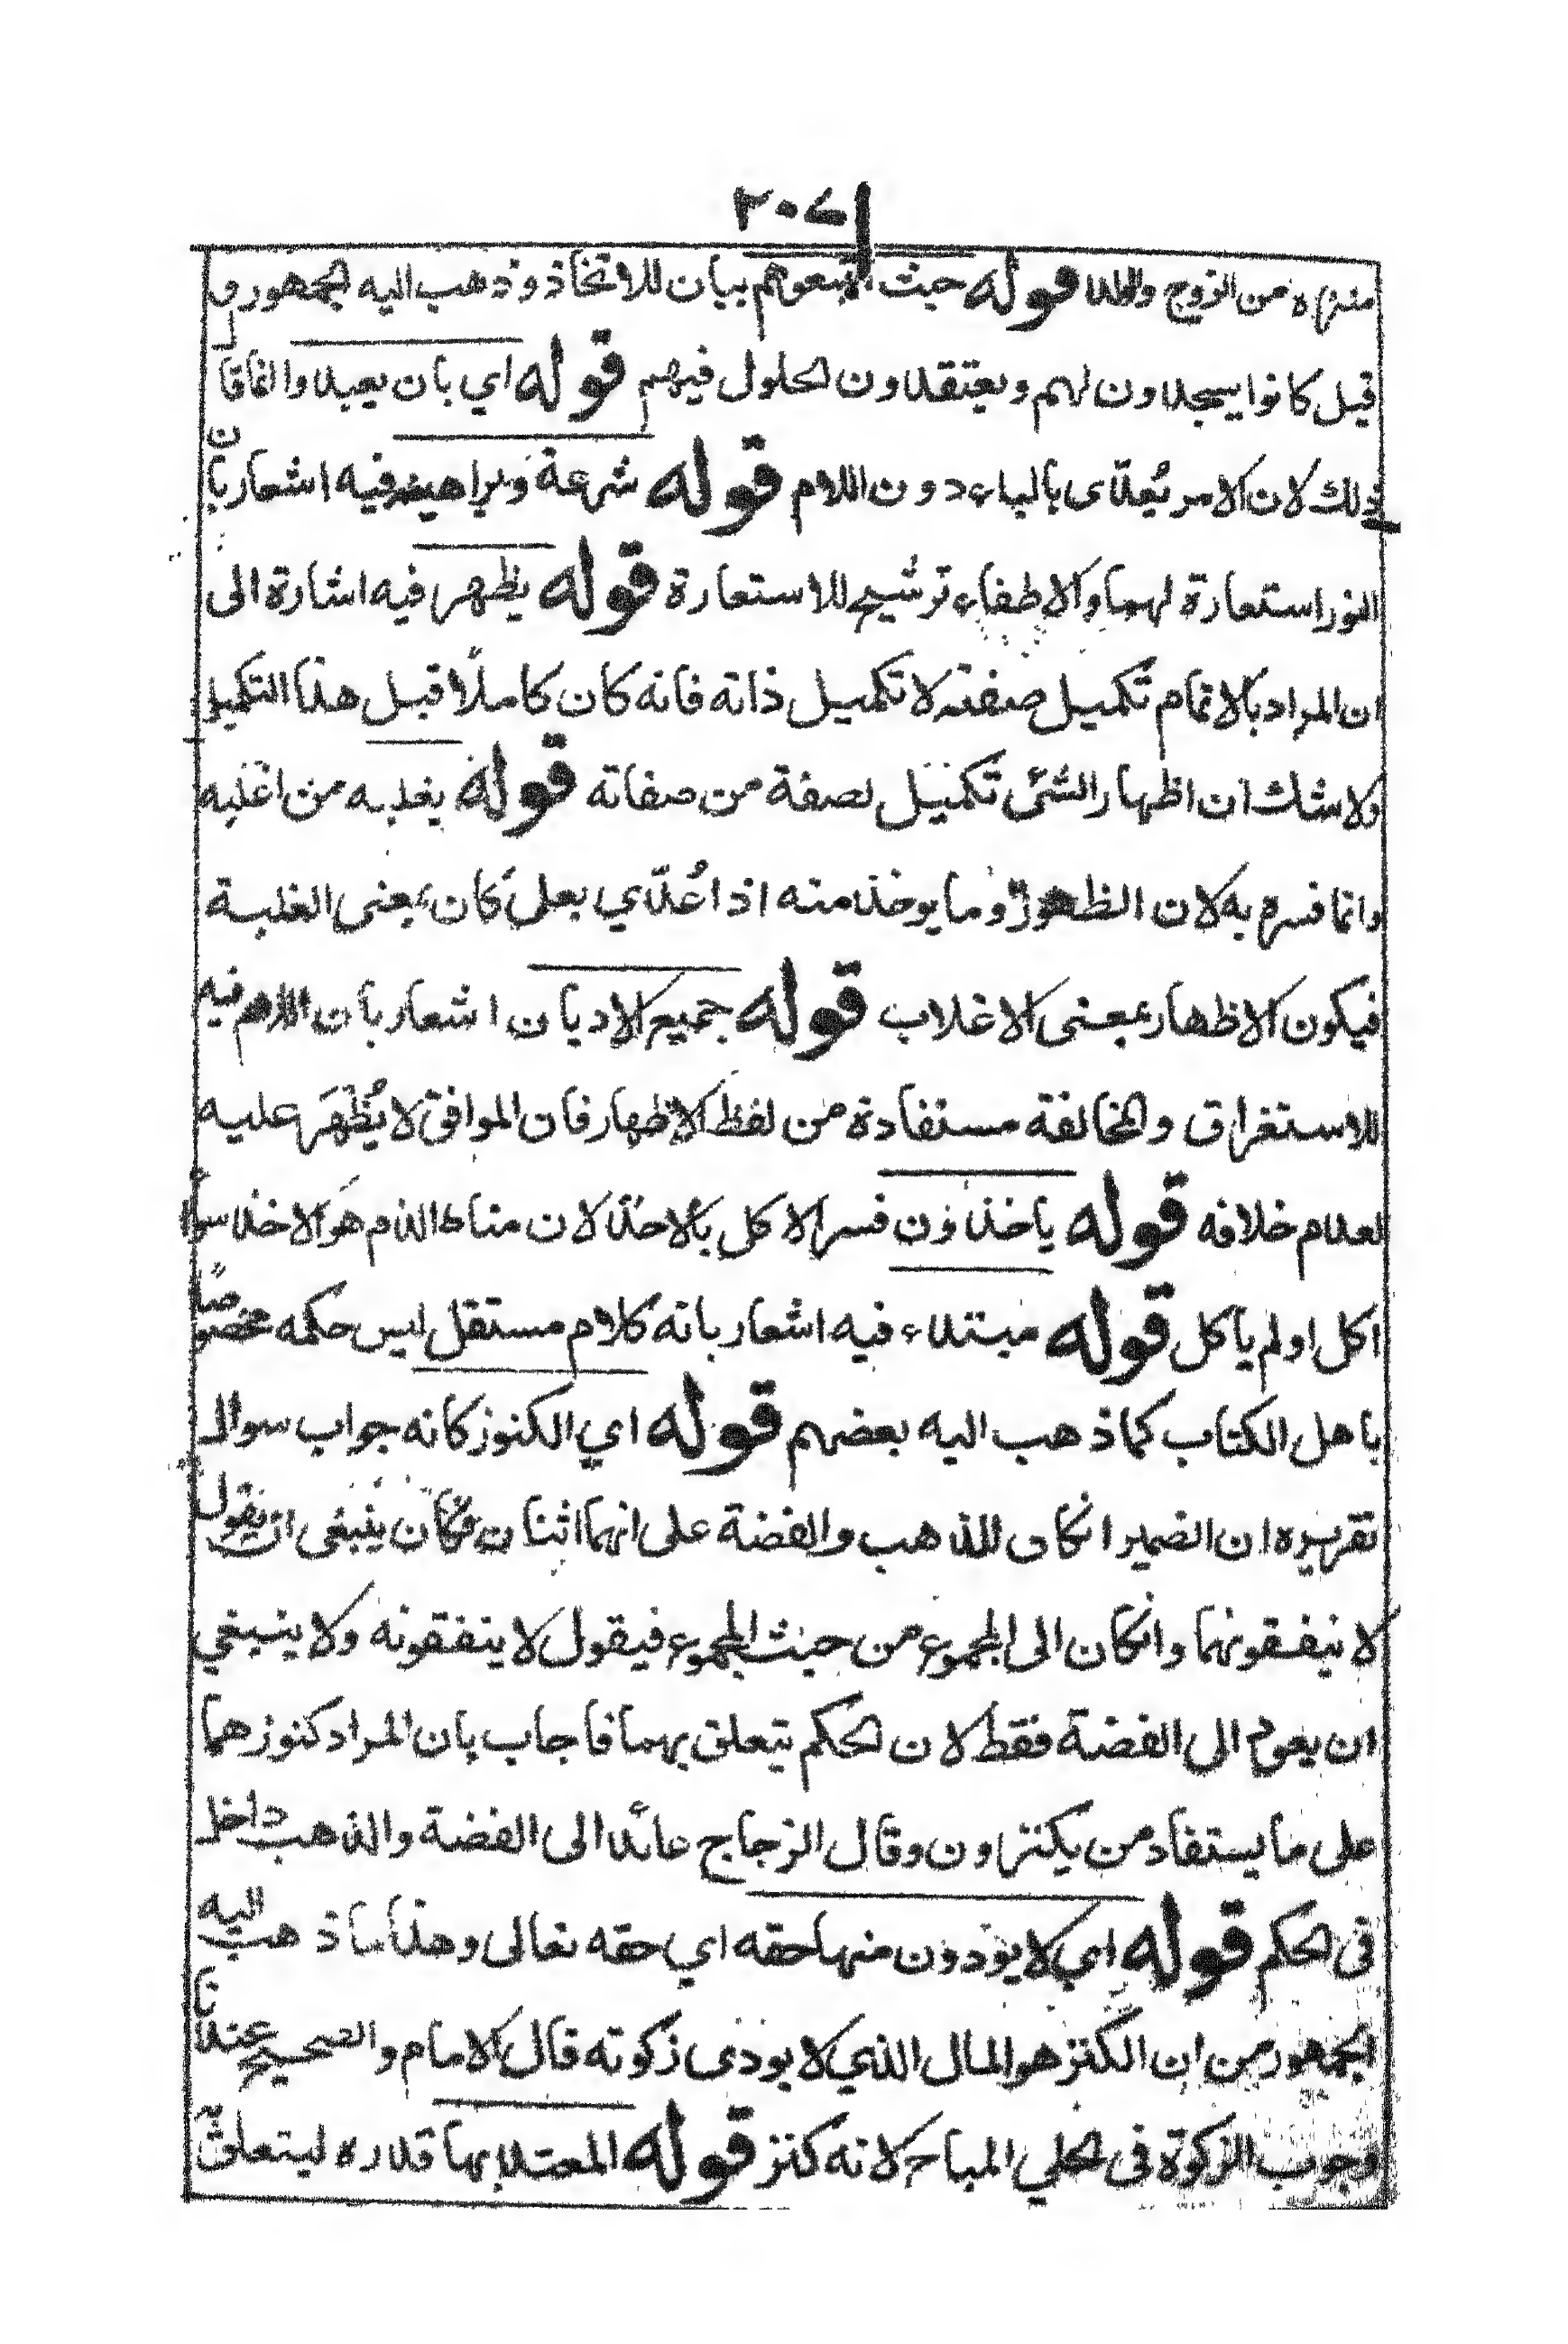 ٢٠٧
منزه من الزوج والولد قوله حيث اتبعوهم بيان للاتخاذ وذهب اليه الجمهور و
قيل كانوا يسجدون لهم ويعتقدون الحلول فيهم قوله اي بان يعبدوا انما قال
ذلك لان الامر يُعدّى بالباء دون اللام قوله شرعة وبراهينه فيه اشعار بان
النور استعارة لهما والاطفاء ترشيح للاستعارة قوله يظهر فيه اشارة الى
ان المراد بالاتمام تكميل صفته لا تكميل ذاته فانه كان كاملًا قبل هذا التكميل
ولا شك ان اظهار الشئ تكميل لصفة من صفاته قوله يغلبه من اغلبه
وانما فسره به لان الظهور وما يوخذ منه اذا عُدّي بعلى كان بمعنى الغلبة
فيكون الاظهار بمعنى الاغلاب قوله جميع الاديان اشعار بان اللام فيه
للاستغراق والمخالفة مستفادة من لفظ الاظهار فان الموافق لا يُظْهَر عليه
لعدم خلافه قوله ياخذون فسر الاكل بالاخذ لان مناط الذم هو الاخذ سواءً
اكل او لم ياكل قوله مبتداء فيه اشعار بانه كلام مستقل ليس حكمه مخصوصًا
باهل الكتاب كما ذهب اليه بعضهم قوله اي الكنوز كانه جواب سوال
تقريره ان الضمير انكان للذهب والفضة على انهما اثنان فكان ينبغى ان يقول
لا ينفقونهما وانكان الى المجموع من حيث المجموع فيقول لا ينفقونه ولا ينبغي
ان يعود الى الفضة فقط لان الحكم يتعلق بهما فاجاب بان المراد كنوزهما
على ما يستفاد من يكنزون وقال الزجاج عائد الى الفضة والذهب داخل
فى الحكم قوله اي لا يؤدون منها حقه اي حقه تعالى وهذا ما ذهب اليه
الجمهور من ان الكنز هو المال الذي لا يودى زكوته قال الامام والصحيح عندنا
وجوب الزكوة فى الحلي المباح لانه كنز قوله المعتد بها قدره ليتعلق